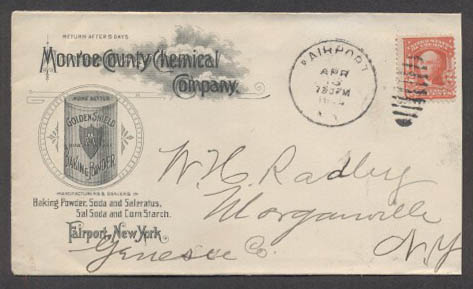 RETURN AFTER 5 DAYS
Monroe County Chemical
Company.
NONE BETTER
GOLDEN SHIELD
BAKING POWDER
MANUFACTURERS & DEALERS IN
Baking Powder, Soda and Saleratus,
Sal Soda and Corn Starch.
Fairport, New York.
FAIRPORT
APR
730PM
N.Y.
W. H. Radley
Morganville
Genesee Co. N.Y.